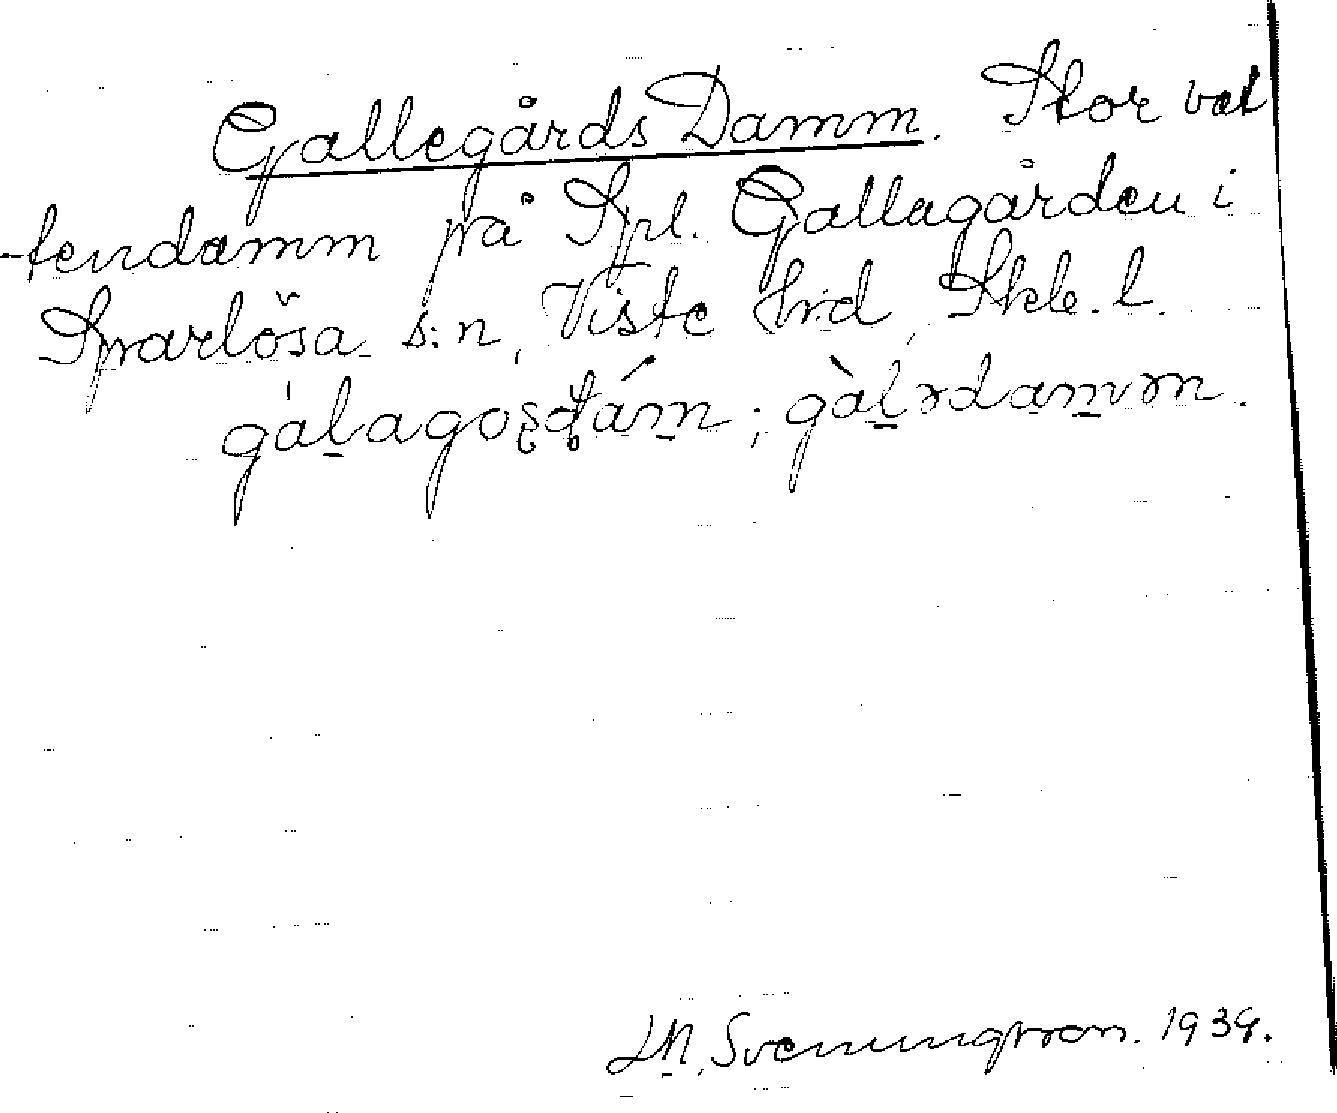 Gallegårds Damm. Stor vat
-tendamm på Spl. Gallagården i
Sparlösa s:n, Viste hrd, Skb. l.
gálagoʂɖám; gàlədamm.
Svenungsson. 1939.